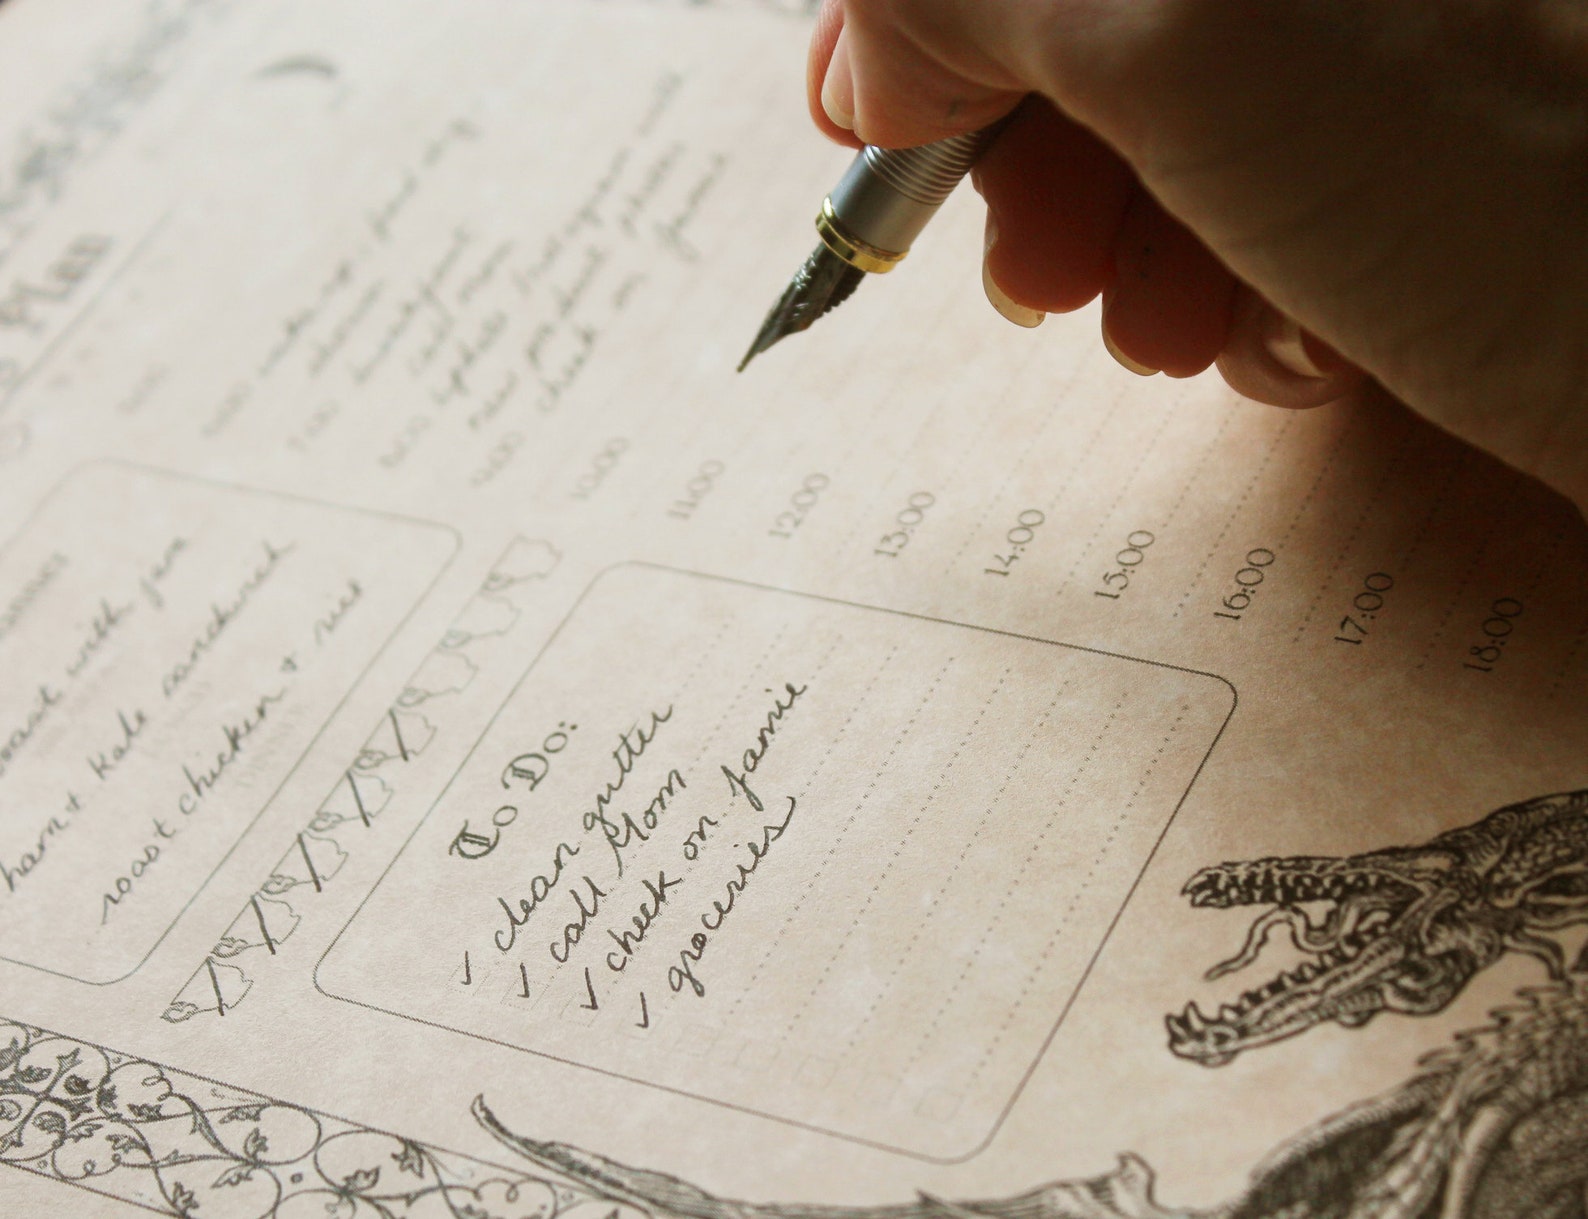 Plan
6:00 wake up
shower
7:00 breakfast
call mom
8:00 update Instagram with
new product photos
9:00 check on Jamie
10:00
11:00
12:00
13:00
14:00
15:00
16:00
17:00
18:00
toast with jam
ham + kale sandwich
roast chicken + rice
To Do:
✓ clean gutter
✓ call Mom
✓ check on Jamie
✓ groceries